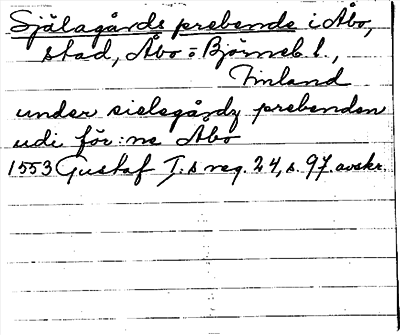 Själagårds prebende i Åbo,
stad, Åbo = Björneb. l.,
Finland
under sielegårdz prebenden
udi för:ne Åbo
1553 Gustaf I:s reg. 24, s. 97. avskr.